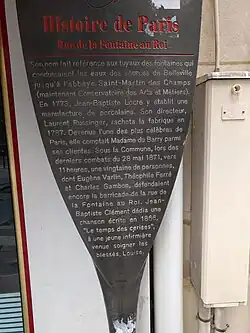 Histoire de Paris
Rue de la Fontaine au Roi
Son nom fait référence aux tuyaux des fontaines qui
conduisaient les eaux des sources de Belleville
jusqu'à l'abbaye Saint-Martin des Champs
(maintenant Conservatoire des Arts et Métiers).
En 1773, Jean-Baptiste Locre y établit une
manufacture de porcelaine. Son directeur,
Laurent Russinger, racheta la fabrique en
1787. Devenue l'une des plus célèbres de
Paris, elle comptait Madame du Barry parmi
ses clientes. Sous la Commune, lors des
derniers combats du 28 mai 1871, vers
11heures, une vingtaine de personnes,
dont Eugène Varlin, Théophile Ferré
et Charles Gambon, défendaient
encore la barricade de la rue de
la Fontaine au Roi. Jean-
Baptiste Clément dédia une
chanson écrite en 1866,
"Le temps des cerises",
à une jeune infirmière
venue soigner les
blessés, Louise.